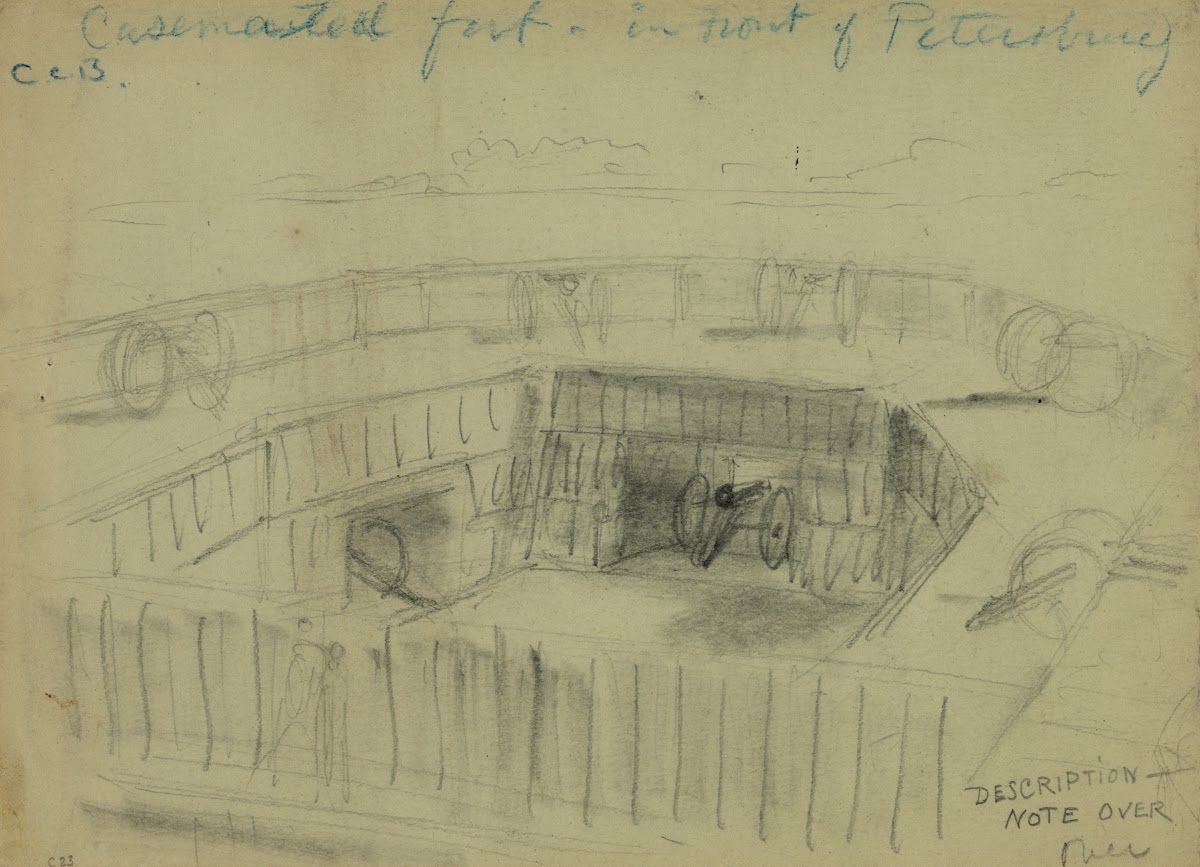 Casemated fort - in front of Petersburg
C C B.
DESCRIPTION
NOTE OVER
Over
C 23